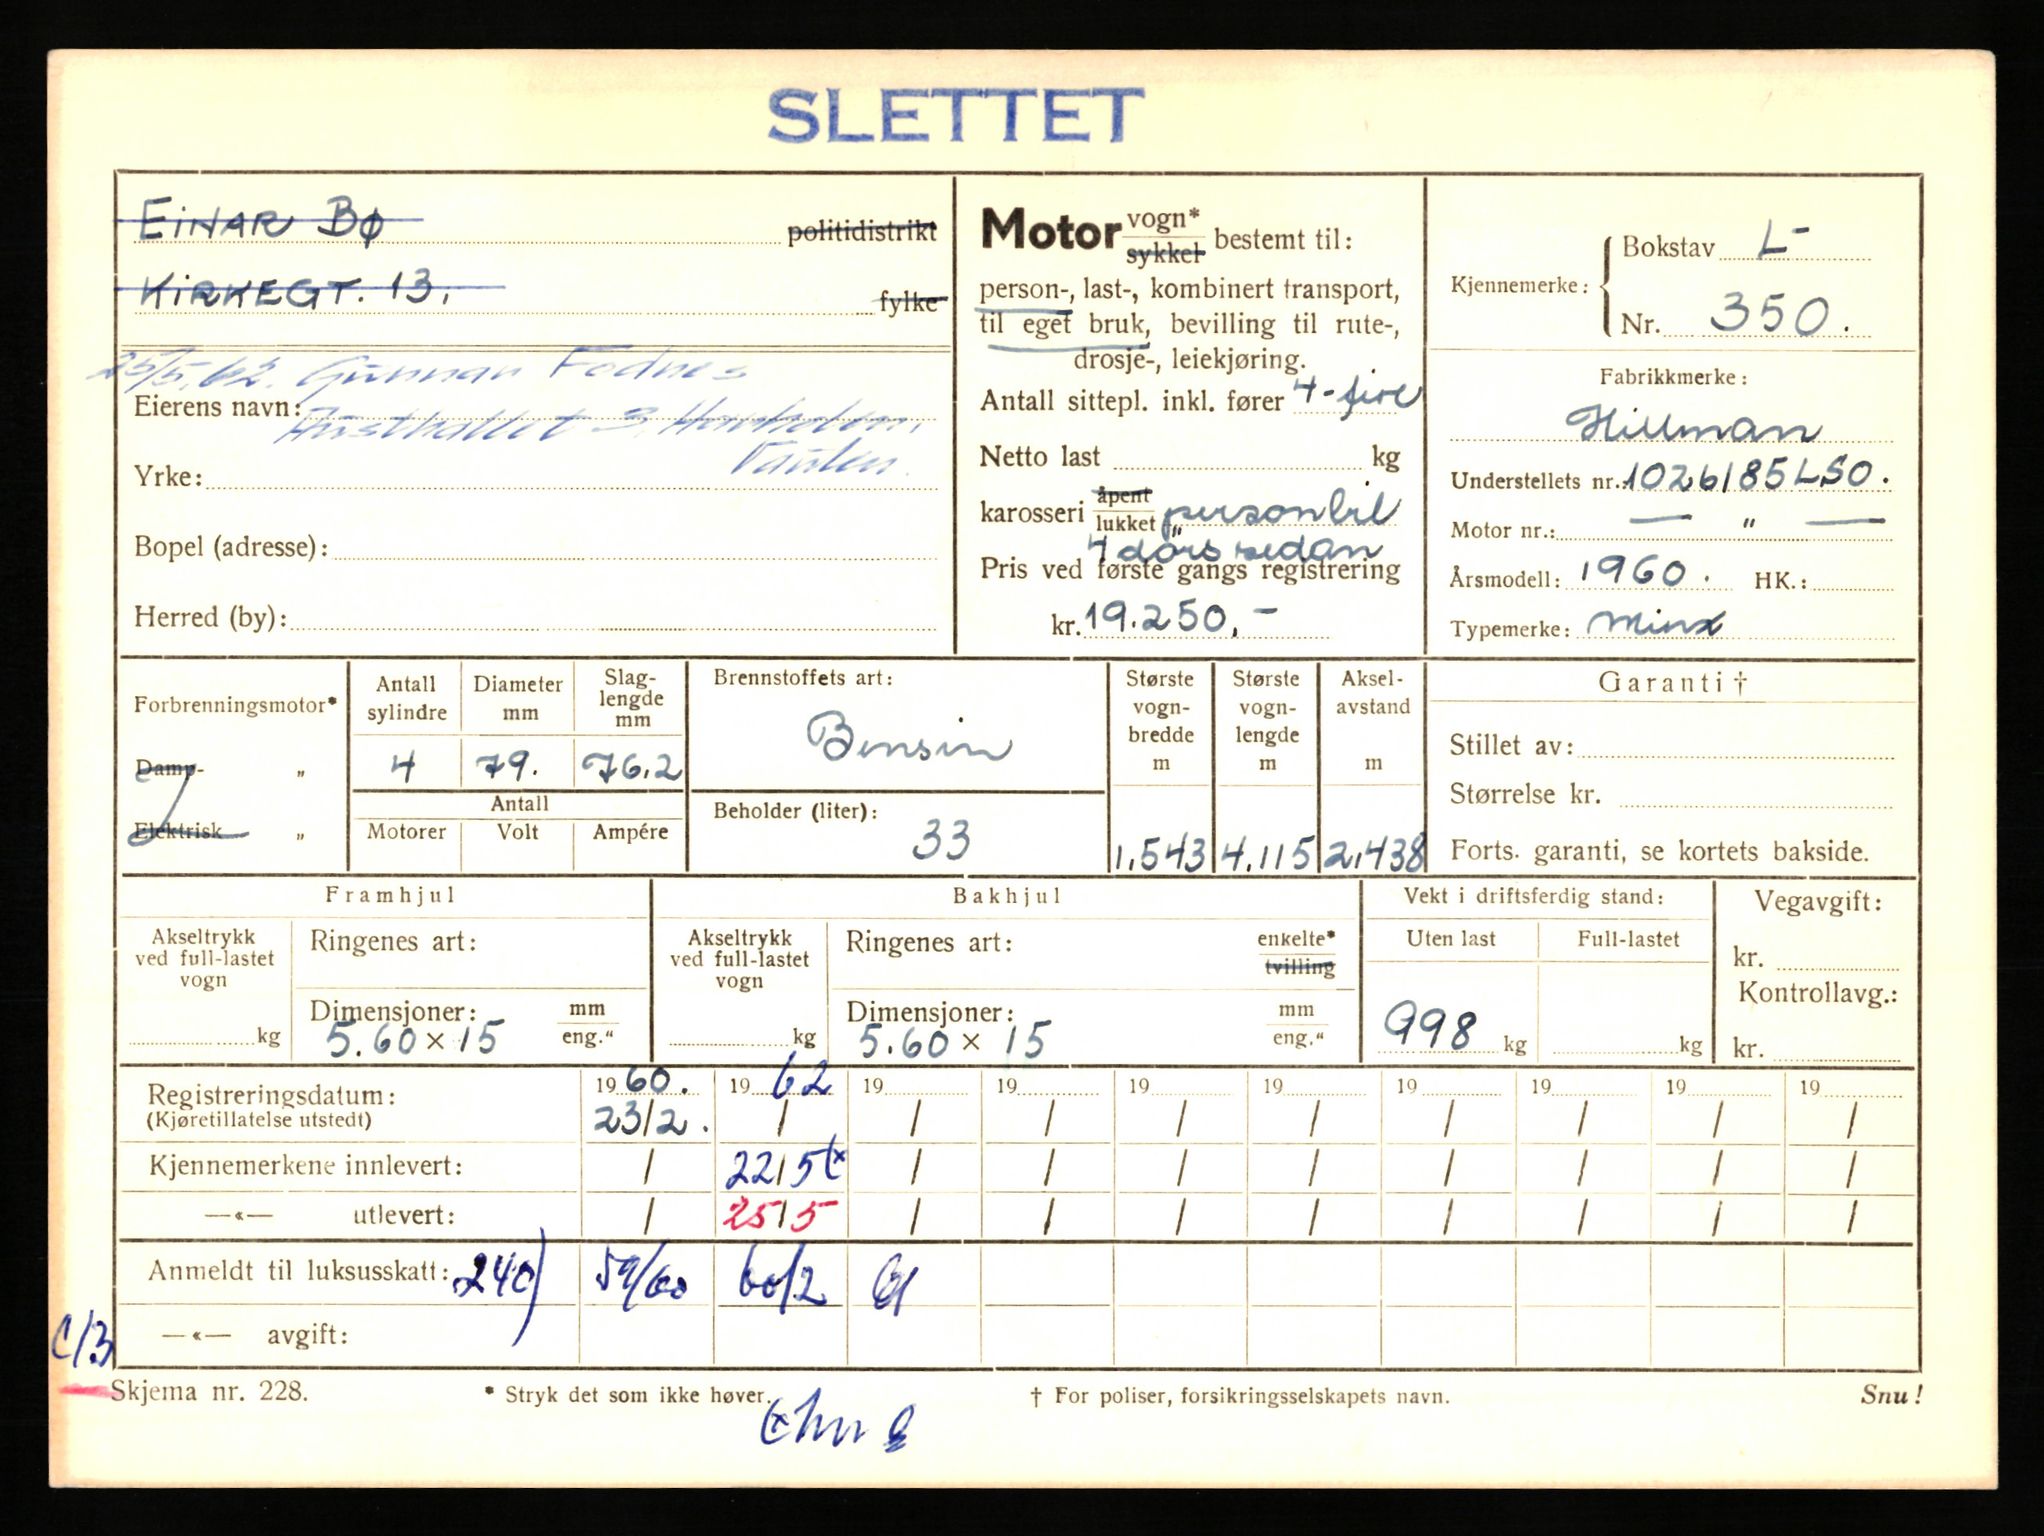 SLETTET
EINAR BØ politidistrikt
KIRKEGT. 13, fylke
25/5.62. Gunnar Fodnes
Eierens navn: 3,
Yrke:
Bopel (adresse):
Herred (by):
Motor vogn* sykkel bestemt til:
person-, last-, kombinert transport,
til eget bruk, bevilling til rute-,
drosje-, leiekjøring.
Antall sittepl. inkl. fører 4-fire
Netto last kg
karosseri åpent lukket personbil
4 dørs sedan
Pris ved første gangs registrering
kr. 19.250,-
Kjennemerke: Bokstav L-
Nr. 350.
Fabrikkmerke:
Hillman
Understellets nr. 1026185LSO.
Motor nr.: — " —
Årsmodell: 1960. HK.:
Typemerke: Minx
Forbrenningsmotor*
Damp- "
Elektrisk "
Antall sylindre Diameter mm Slag-lengde mm
4 79. 76.2
Antall
Motorer Volt Ampére
Brennstoffets art:
Bensin
Beholder (liter):
33
Største vogn-bredde m Største vogn-lengde m Aksel-avstand m
1.543 4.115 2.438
Garanti †
Stillet av:
Størrelse kr.
Forts. garanti, se kortets bakside.
Framhjul
Akseltrykk ved full-lastet vogn
kg
Ringenes art:
Dimensjoner: mm eng."
5.60 × 15
Bakhjul
Akseltrykk ved full-lastet vogn
kg
Ringenes art: enkelte* tvilling
Dimensjoner: mm eng."
5.60 × 15
Vekt i driftsferdig stand:
Uten last Full-lastet
998 kg kg
Vegavgift:
kr.
Kontrollavg.:
kr.
Registreringsdatum: 19 60. 19 62 19 19 19 19 19 19 19 19
(Kjøretillatelse utstedt) 23/2. / / / / / / / / /
Kjennemerkene innlevert: / 22/5 (x / / / / / / / /
—«— utlevert: / 25/5 / / / / / / / /
Anmeldt til luksusskatt: 240) 59/60 60/2
—«— avgift:
C/3
Skjema nr. 228. * Stryk det som ikke høver. † For poliser, forsikringsselskapets navn. Snu!